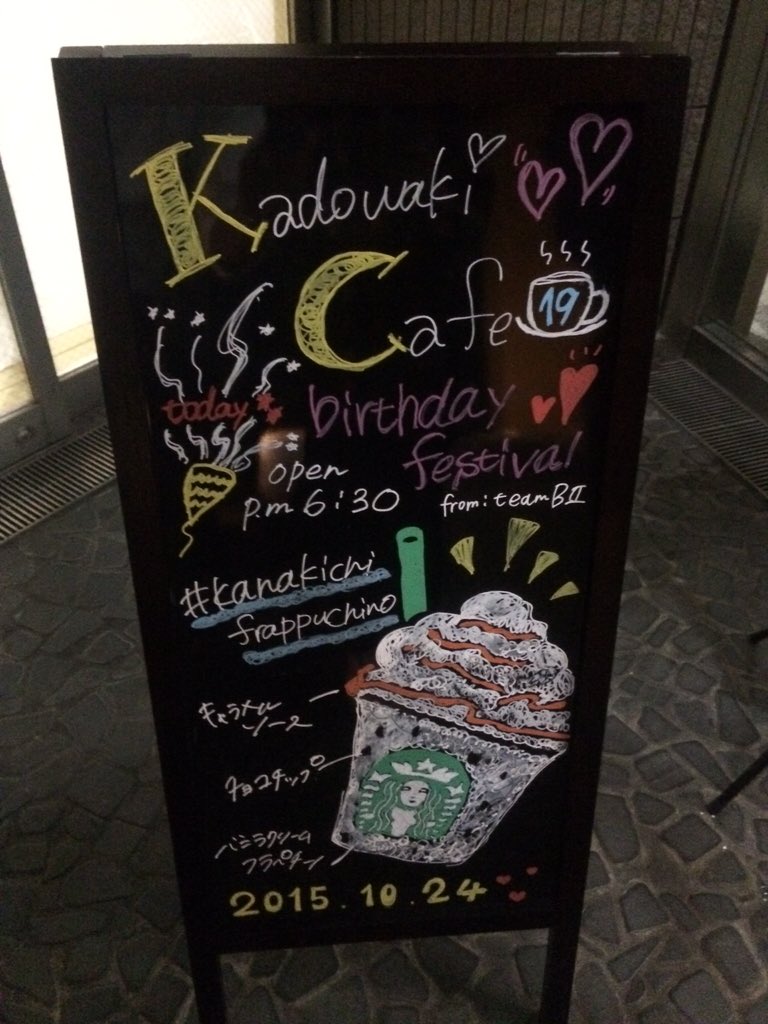 Kadowaki
Cafe
19
today
birthday
festival
open
p.m 6:30
from: teamBⅡ
#kanakichi
frappuchino
キャラメル
ソース
チョコチップ
バニラクリーム
フラペチーノ
2015.10.24